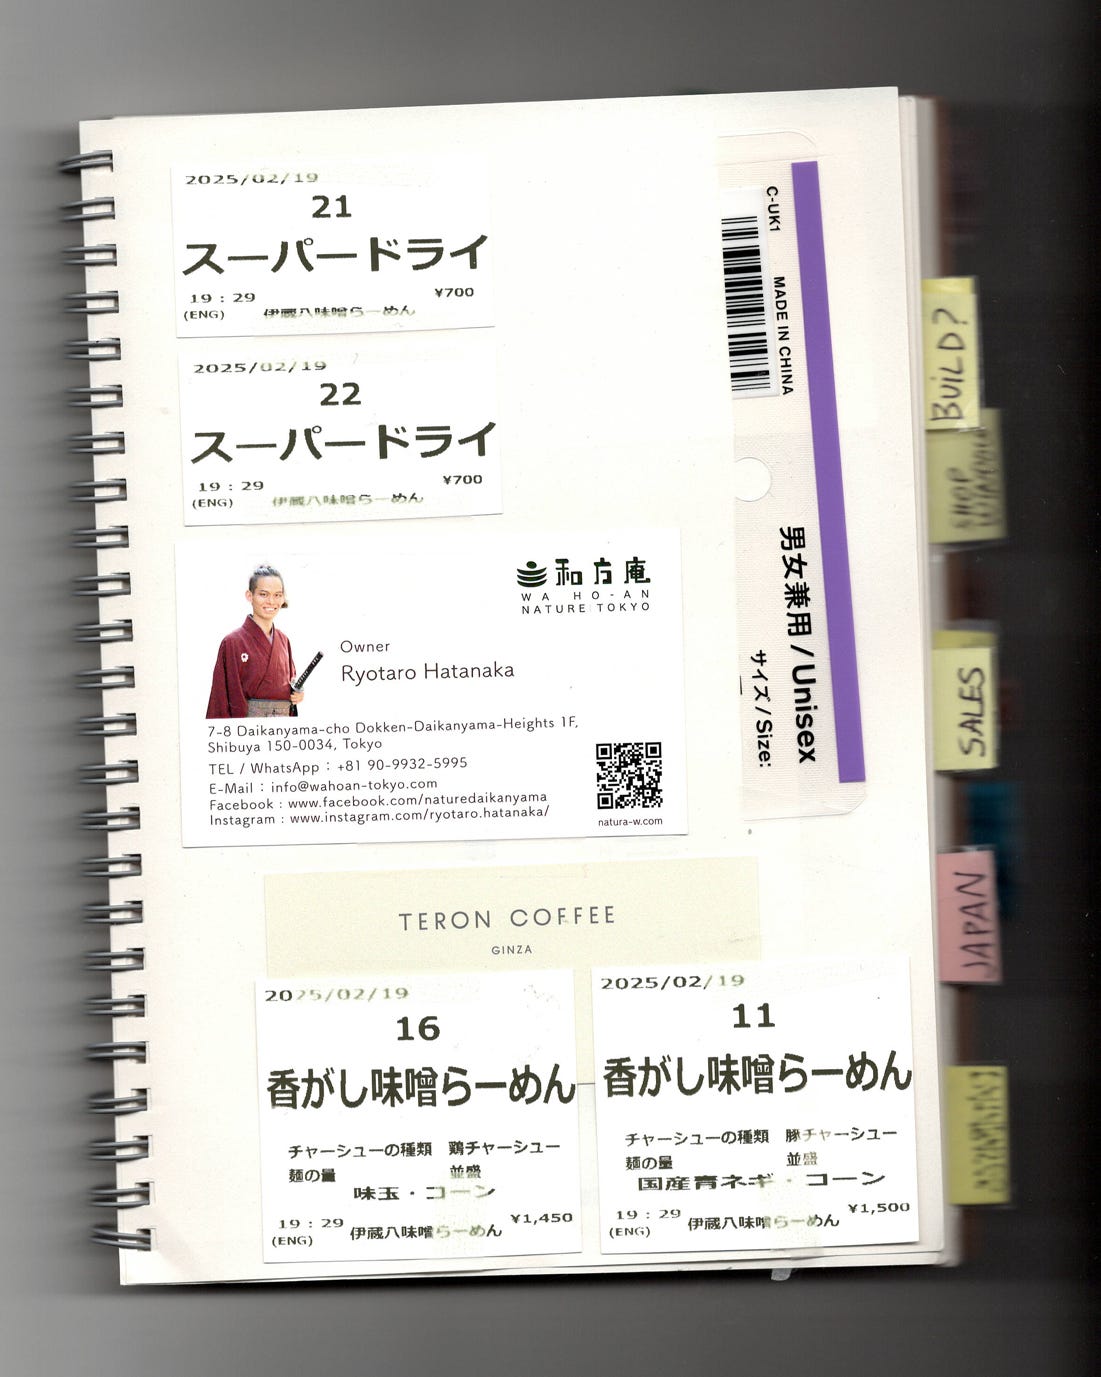 2025/02/19
21
スーパードライ
19 : 29
¥700
(ENG)
伊蔵八味噌らーめん
2025/02/19
22
スーパードライ
19 : 29
¥700
(ENG)
伊蔵八味噌らーめん
和方庵
WA HO-AN
NATURE TOKYO
Owner
Ryotaro Hatanaka
7-8 Daikanyama-cho Dokken-Daikanyama-Heights 1F,
Shibuya 150-0034, Tokyo
TEL / WhatsApp : +81 90-9932-5995
E-Mail : info@wahoan-tokyo.com
Facebook : www.facebook.com/naturedaikanyama
Instagram : www.instagram.com/ryotaro.hatanaka/
natura-w.com
C-UK1
MADE IN CHINA
男女兼用 / Unisex
サイズ / Size:
TERON COFFEE
GINZA
2025/02/19
16
香がし味噌らーめん
チャーシューの種類 鶏チャーシュー
麺の量 並盛
味玉・コーン
19 : 29
¥1,450
(ENG)
伊蔵八味噌らーめん
2025/02/19
11
香がし味噌らーめん
チャーシューの種類 豚チャーシュー
麺の量 並盛
国産青ネギ・コーン
19 : 29
¥1,500
(ENG)
伊蔵八味噌らーめん
BUILD?
SHOP
SALES
JAPAN